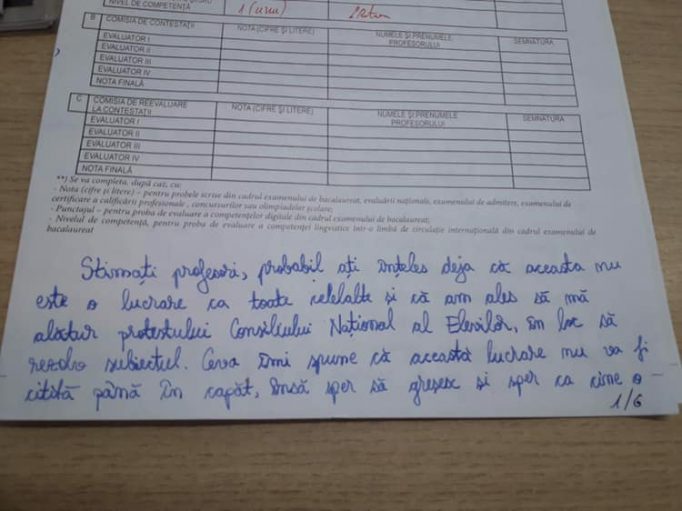 NIVEL DE COMPETENȚĂ 1 (unu)
B COMISIA DE CONTESTAȚII NOTA (CIFRE ȘI LITERE) NUMELE ȘI PRENUMELE PROFESORULUI SEMNĂTURA
EVALUATOR I
EVALUATOR II
EVALUATOR III
EVALUATOR IV
NOTA FINALĂ
C COMISIA DE REEVALUARE LA CONTESTAȚII NOTA (CIFRE ȘI LITERE) NUMELE ȘI PRENUMELE PROFESORULUI SEMNĂTURA
EVALUATOR I
EVALUATOR II
EVALUATOR III
EVALUATOR IV
NOTA FINALĂ
**) Se va completa, după caz, cu:
- Nota (cifre și litere) – pentru probele scrise din cadrul examenului de bacalaureat, evaluării naționale, examenului de admitere, examenului de
certificare a calificării profesionale , concursurilor sau olimpiadelor școlare;
- Punctajul – pentru proba de evaluare a competențelor digitale din cadrul examenului de bacalaureat;
- Nivelul de competență, pentru proba de evaluare a competenței lingvistice într-o limbă de circulație internațională din cadrul examenului de
bacalaureat
Stimați profesori, probabil ați înțeles deja că aceasta nu
este o lucrare ca toate celelalte și că am ales să mă
alătur protestului Consiliului Național al Elevilor, în loc să
rezolv subiectul. Ceva îmi spune că această lucrare nu va fi
citită până în capăt, însă sper să greșesc și sper ca cine o
1/6